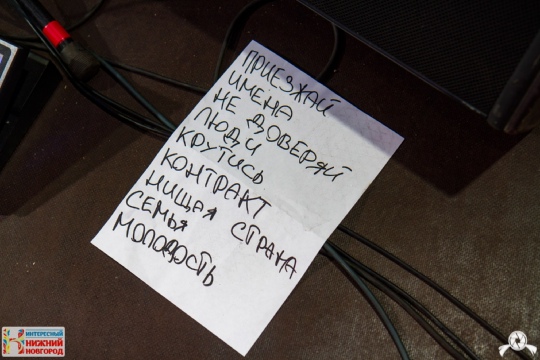 ПРИЕЗЖАЙ
ИМЕНА
НЕ ДОВЕРЯЙ
ЛЮДИ
КРУТИСЬ
КОНТРАКТ
НИЩАЯ СТРАНА
СЕМЬЯ
МОЛОДОСТЬ
ИНТЕРЕСНЫЙ
НИЖНИЙ
НОВГОРОД